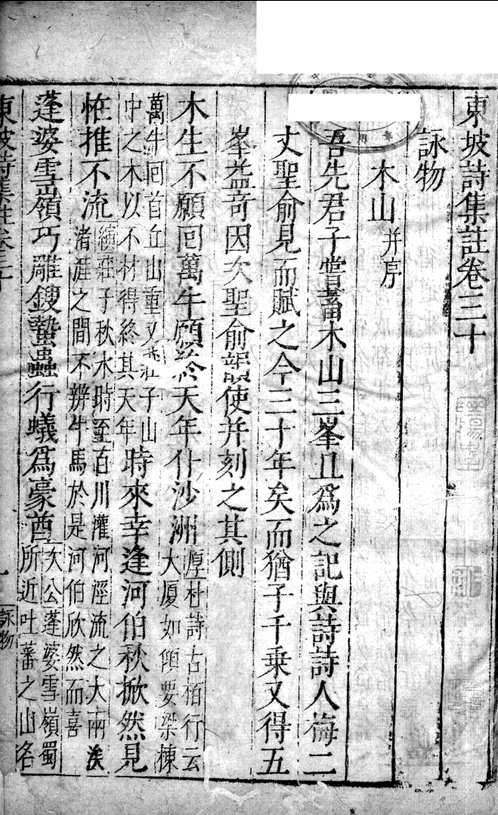 東坡詩集註卷三十
詠物
木山 并序
吾先君子嘗蓄木山三峯且為之記與詩詩人梅二
丈聖俞見而賦之今三十年矣而猶子千乘又得五
峯益奇因次聖俞韻使并刻之其側
木生不願囘萬牛願終天年仆沙洲厚杜詩古柏行云大厦如傾要梁棟
萬牛囘首丘山重又莊子山中之木以不材得終其天年時來幸逢河伯秋掀然見
怪推不流縯莊子秋水時至百川灌河涇流之大兩涘渚涯之間不辨牛馬於是河伯欣然而喜
蓬婆雪嶺巧雕鎪蟄蟲行蟻為豪酋次公蓬婆雪嶺蜀所近吐蕃之山名
東坡詩集註卷三十
一
詠物